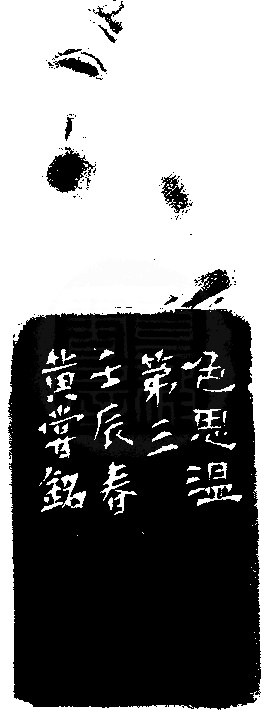 色思温
第三
壬辰春
黄甞銘